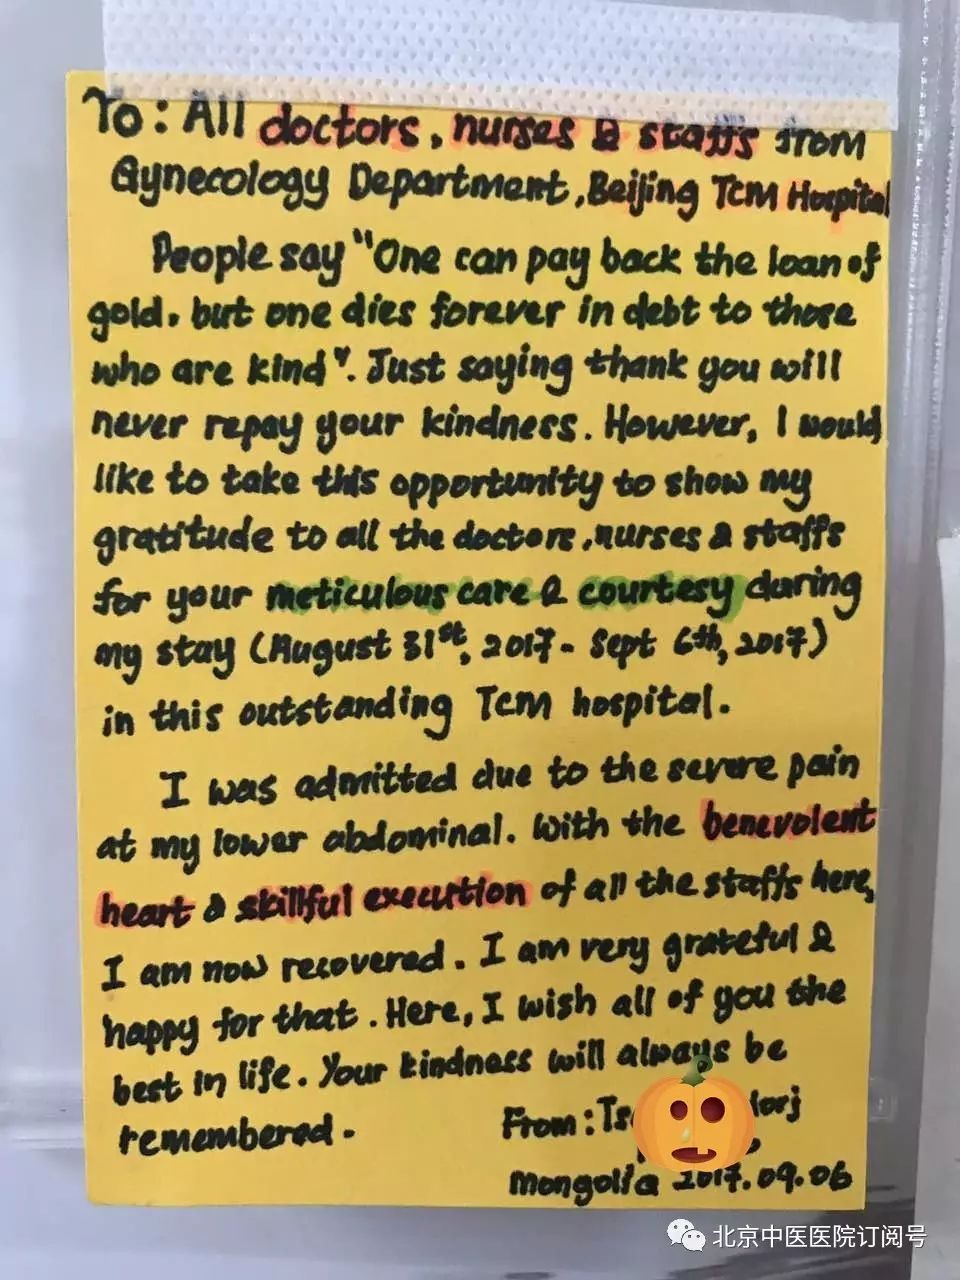 To: All doctors, nurses & staffs from
Gynecology Department, Beijing TCM Hospital
People say "One can pay back the loan of
gold, but one dies forever in debt to those
who are kind". Just saying thank you will
never repay your kindness. However, I would
like to take this opportunity to show my
gratitude to all the doctors, nurses & staffs
for your meticulous care & courtesy during
my stay (August 31st, 2017 - Sept 6th, 2017)
in this outstanding TCM hospital.
I was admitted due to the severe pain
at my lower abdominal. With the benevolent
heart & skillful execution of all the staffs here,
I am now recovered. I am very grateful &
happy for that. Here, I wish all of you the
best in life. Your kindness will always be
remembered.
From: Ts
Mongolia 2017.09.06
北京中医医院订阅号